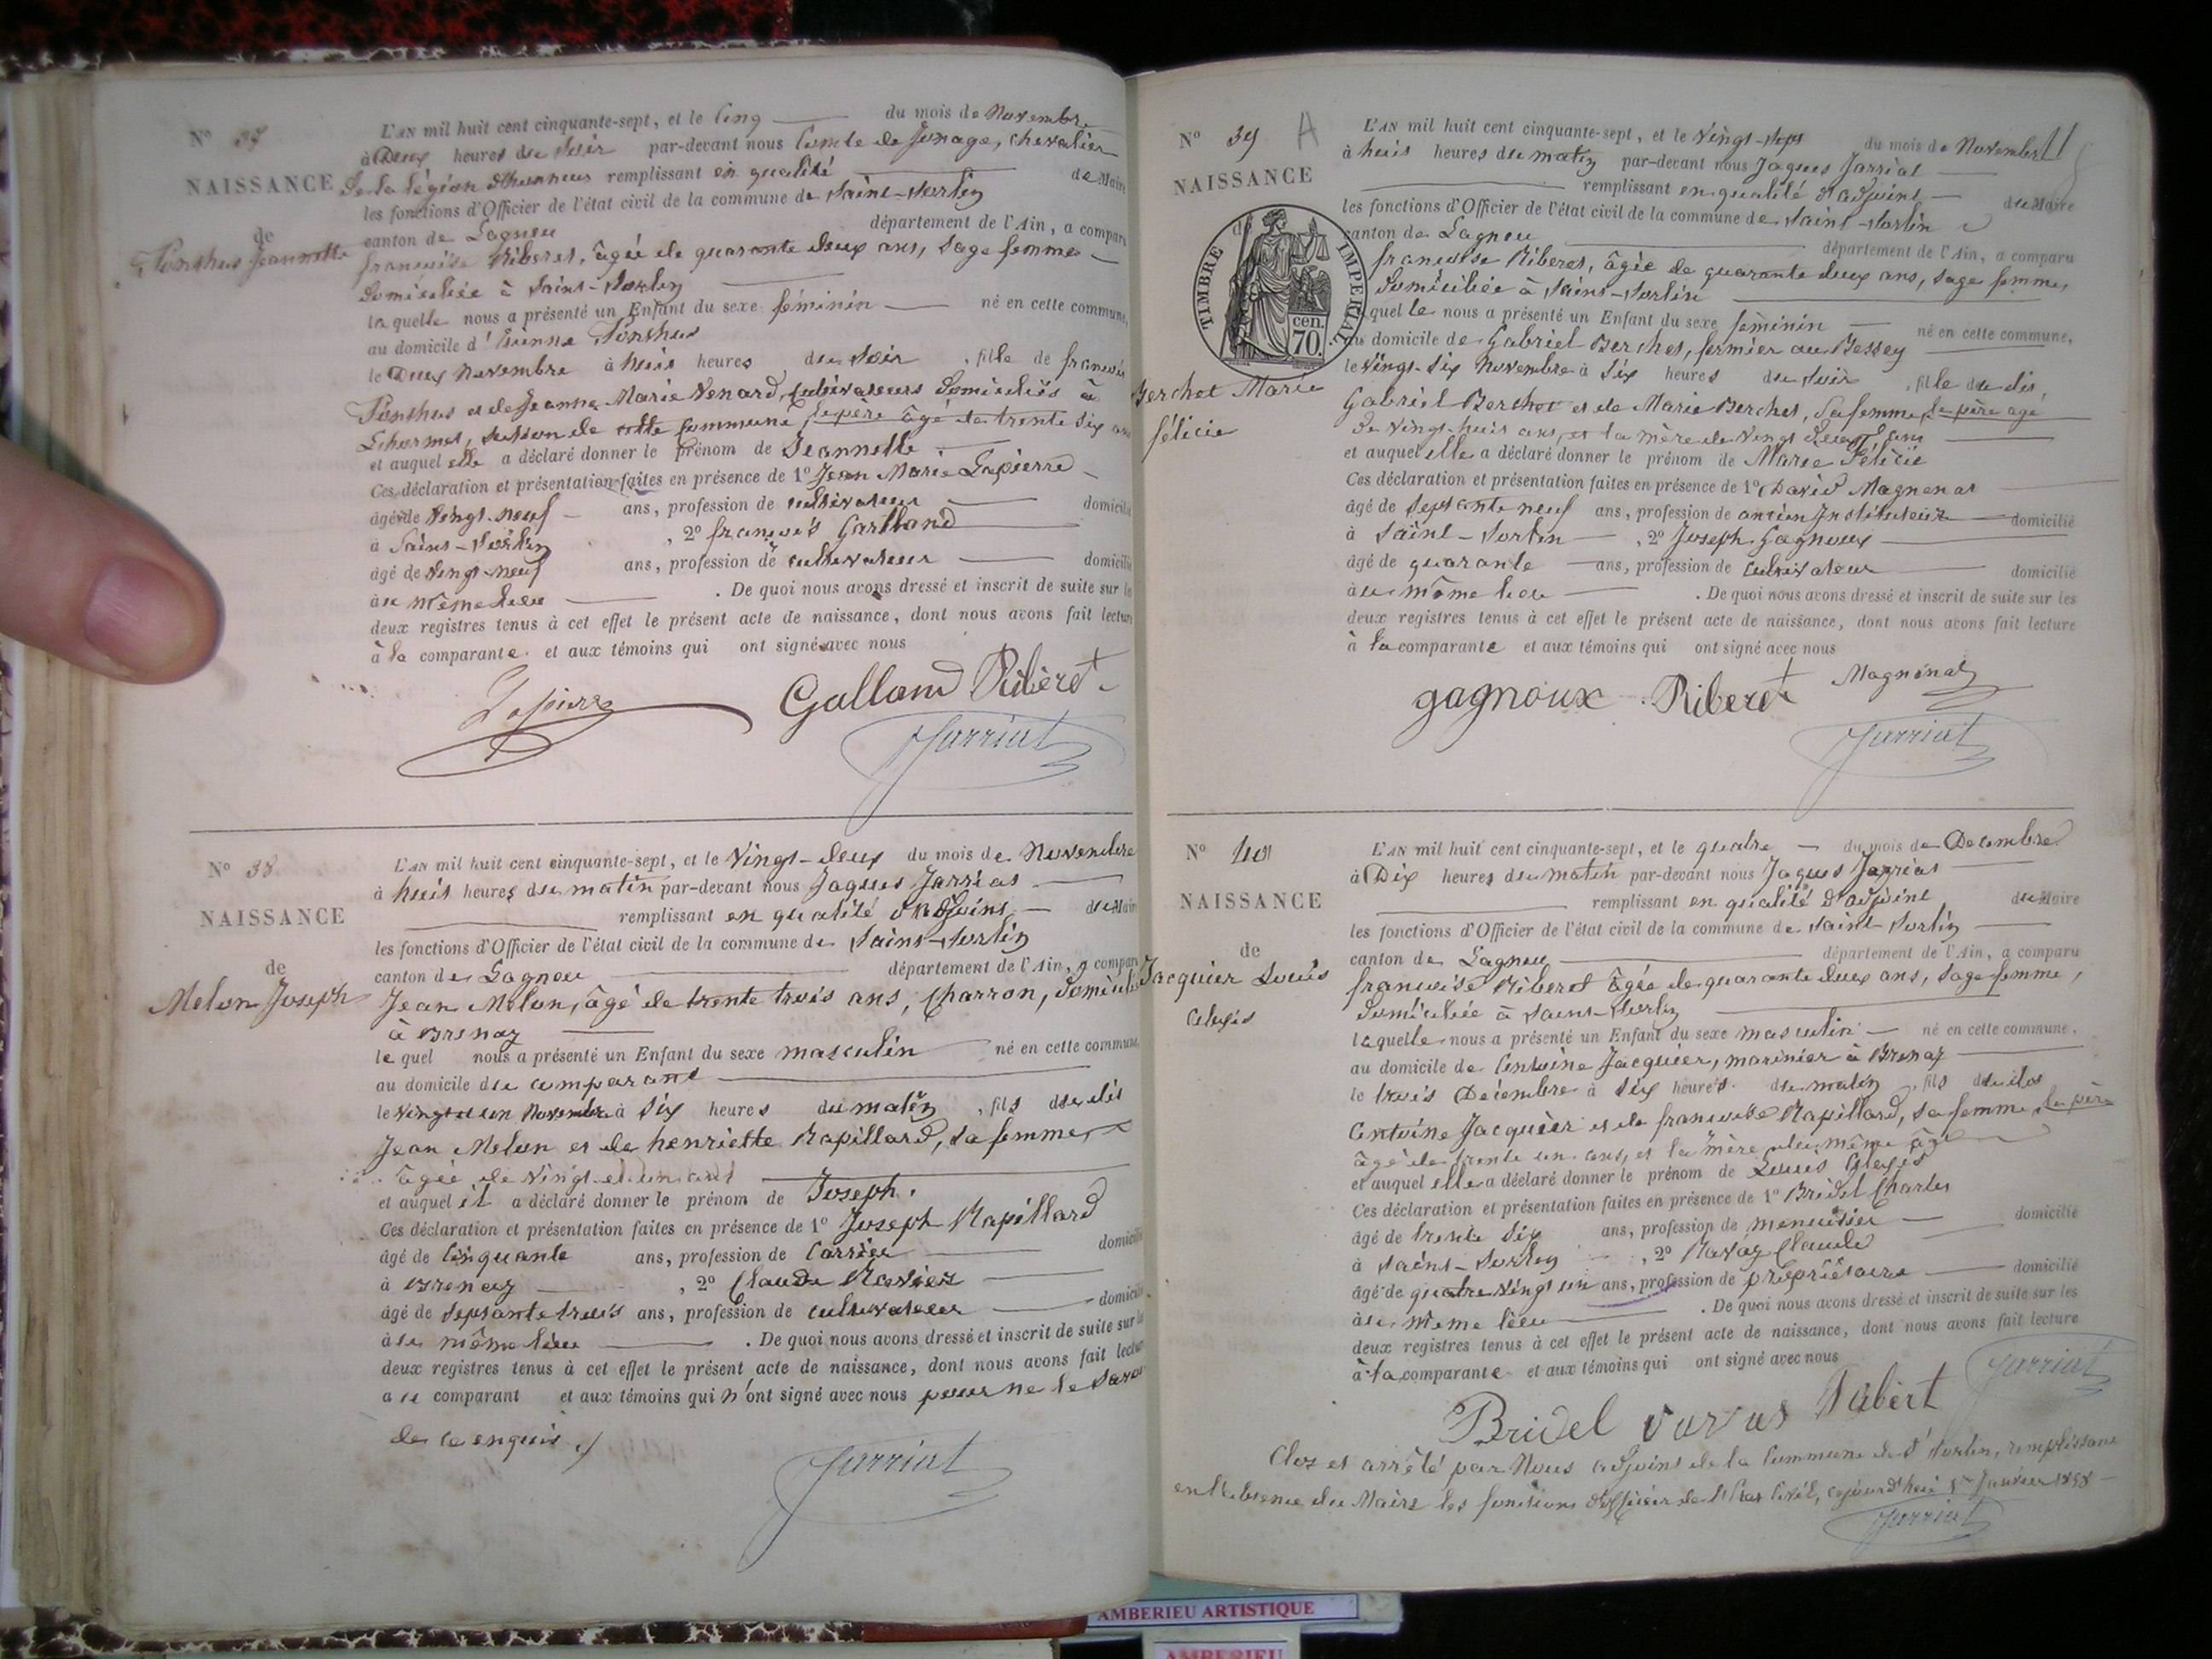 N° 37
NAISSANCE
de
Ponthus Jeannette
L'AN mil huit cent cinquante-sept, et le Cinq du mois de Novembre
à Deux heures du Soir par-devant nous Comte de Jonage, Chevalier
de la légion d'honneur remplissant en qualité de Maire
les fonctions d'Officier de l'état civil de la commune de Saint-Sorlin
canton de Lagneu département de l'Ain, a comparu
françoise Riberet, âgée de quarante deux ans, Sage femme
Domiciliée à Saint-Sorlin
laquelle nous a présenté un Enfant du sexe féminin né en cette commune,
au domicile d'Etienne Ponthus
le Deux Novembre à huit heures du Soir, fille de françois
Ponthus et de Jeanne Marie Venard, Cultivateurs Domiciliés à
Charmet, section de cette Commune, le père âgé de trente Six ans
et auquel elle a déclaré donner le prénom de Jeannette
Ces déclaration et présentation faites en présence de 1° Jean Marie Lapierre
âgé de Vingt-neuf ans, profession de cultivateur domicilié
à Saint-Sorlin, 2° françois Galland
âgé de Vingt-neuf ans, profession de cultivateur domicilié
au même lieu. De quoi nous avons dressé et inscrit de suite sur les
deux registres tenus à cet effet le présent acte de naissance, dont nous avons fait lecture
à la comparante et aux témoins qui ont signé avec nous
Lapierre Galland Riberet
Jarriat
N° 38
NAISSANCE
de
Melon Joseph
L'AN mil huit cent cinquante-sept, et le Vingt-deux du mois de Novembre
à huit heures du matin par-devant nous Jaques Jarriat
remplissant en qualité d'adjoint du Maire
les fonctions d'Officier de l'état civil de la commune de Saint-Sorlin
canton de Lagneu département de l'Ain, a comparu
Jean Melon, âgé de trente trois ans, Charron, Domicilié
à Brenaz
lequel nous a présenté un Enfant du sexe masculin né en cette commune,
au domicile du comparant
le Vingt et un Novembre à Six heures du matin, fils du dit
Jean Melon et de henriette Rapillard, Sa femme
âgée de Vingt et un ans
et auquel il a déclaré donner le prénom de Joseph.
Ces déclaration et présentation faites en présence de 1° Joseph Rapillard
âgé de Cinquante ans, profession de Carrier domicilié
à Brenaz, 2° Claude Ravier
âgé de Septante trois ans, profession de cultivateur domicilié
au même lieu. De quoi nous avons dressé et inscrit de suite sur les
deux registres tenus à cet effet le présent acte de naissance, dont nous avons fait lecture
au comparant et aux témoins qui n'ont signé avec nous pour ne le Savoir
de ce enquis
Jarriat
N° 39 A
NAISSANCE
de
TIMBRE IMPERIAL
70 cen.
Berchet Marie
félicie
L'AN mil huit cent cinquante-sept, et le Vingt-Sept du mois de Novembre
à huit heures du matin par-devant nous Jaques Jarriat
remplissant en qualité d'adjoint du Maire
les fonctions d'Officier de l'état civil de la commune de Saint-Sorlin
canton de Lagneu département de l'Ain, a comparu
françoise Riberet, âgée de quarante deux ans, Sage femme,
Domiciliée à Saint-Sorlin
laquelle nous a présenté un Enfant du sexe féminin né en cette commune,
au domicile de Gabriel Berchet, fermier au Bessey
le Vingt-Six Novembre à Six heures du Soir, fille du dit
Gabriel Berchet et de Marie Berchet, Sa femme, le père agé
de Vingt-huit ans, et la mère de Vingt deux ans
et auquel elle a déclaré donner le prénom de Marie Félicie
Ces déclaration et présentation faites en présence de 1° David Magnenat
âgé de Septante neuf ans, profession de ancien Instituteur domicilié
à Saint-Sorlin, 2° Joseph Gagnoux
âgé de quarante ans, profession de Cultivateur domicilié
au même lieu. De quoi nous avons dressé et inscrit de suite sur les
deux registres tenus à cet effet le présent acte de naissance, dont nous avons fait lecture
à la comparante et aux témoins qui ont signé avec nous
gagnoux Riberet Magnénat
Jarriat
N° 40
NAISSANCE
de
Jacquier Louis
Alexis
L'AN mil huit cent cinquante-sept, et le quatre du mois de Décembre
à Dix heures du matin par-devant nous Jaques Jarriat
remplissant en qualité d'adjoint du Maire
les fonctions d'Officier de l'état civil de la commune de Saint-Sorlin
canton de Lagneu département de l'Ain, a comparu
françoise Riberet âgée de quarante deux ans, Sage femme,
Domiciliée à Saint-Sorlin
laquelle nous a présenté un Enfant du sexe masculin né en cette commune.
au domicile de Antoine Jacquier, marinier à Brenaz
le trois Décembre à Six heures du matin, fils du dit
Antoine Jacquier et de françoise Rapillard, Sa femme, le père
âgé de trente un ans, et la mère du même âge
et auquel elle a déclaré donner le prénom de Louis Alexis
Ces déclaration et présentation faites en présence de 1° Bridel Charles
âgé de trente Six ans, profession de menuisier domicilié
à Saint-Sorlin, 2° Claude
âgé de quatre Vingt un ans, profession de propriétaire domicilié
au même lieu. De quoi nous avons dressé et inscrit de suite sur les
deux registres tenus à cet effet le présent acte de naissance, dont nous avons fait lecture
à la comparante et aux témoins qui ont signé avec nous
Jarriat
Bridel
Clos et arrêté par Nous adjoint de la Commune de St Sorlin, remplissant
en l'absence du Maire les fonctions d'officier de l'Etat Civil, cejourd'hui 1er Janvier 1858
Jarriat
AMBERIEU ARTISTIQUE
AMBERIEU